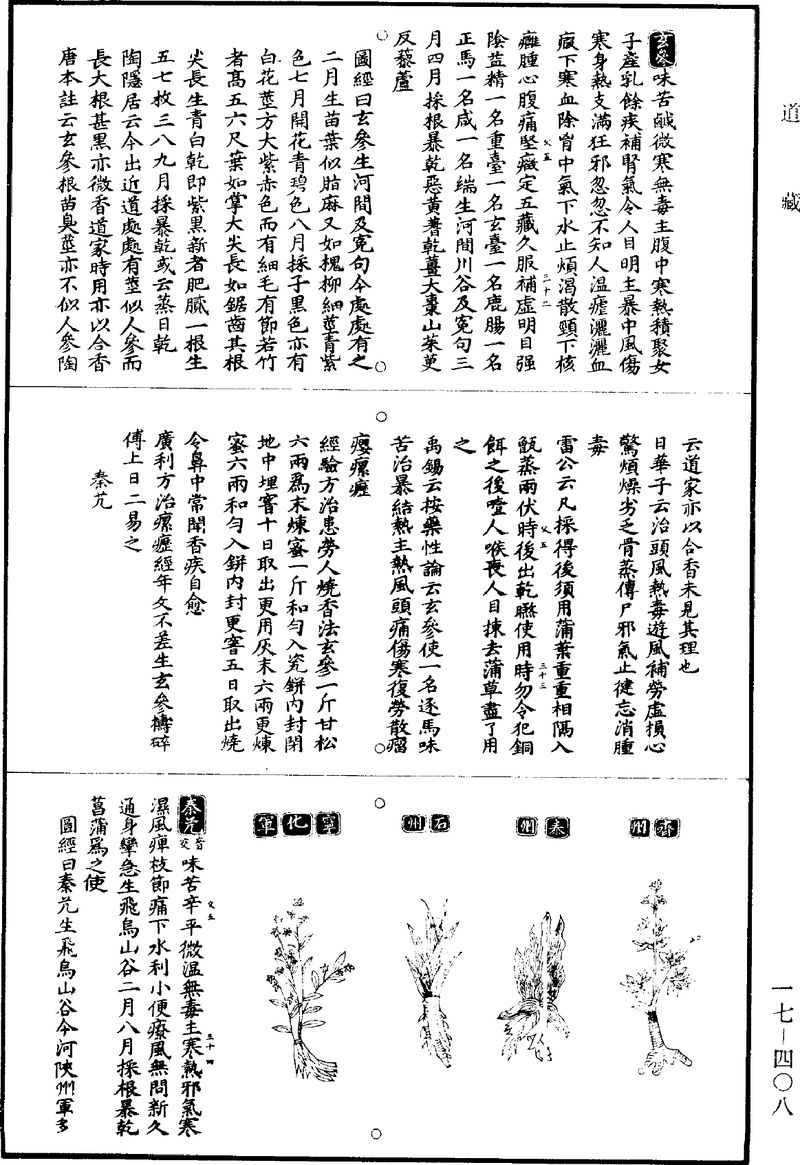 道藏
玄參味苦鹹微寒無毒主腹中寒熱積聚女
子產乳餘疾補腎氣令人目明主暴中風傷
寒身熱支滿狂邪忽忽不知人溫瘧灑灑血
瘕下寒血除胷中氣下水止煩渴散頸下核
癰腫心腹痛堅癥定五藏久服補虛明目强
陰益精一名重臺一名玄臺一名鹿腸一名
正馬一名咸一名端生河間川谷及冤句三
月四月採根暴乾惡黃耆乾薑大棗山茱萸
反藜蘆
圖經曰玄參生河間及冤句今處處有之
二月生苗葉似脂麻又如槐柳細莖青紫
色七月開花青碧色八月採子黑色亦有
白花莖方大紫赤色而有細毛有節若竹
者高五六尺葉如掌大尖長如鋸齒其根
尖長生青白乾即紫黑新者肥膩一根生
五七枚三八九月採暴乾或云蒸日乾
陶隱居云今出近道處處有莖似人參而
長大根甚黑亦微香道家時用亦以合香
唐本註云玄參根苗臭莖亦不似人參陶
云道家亦以合香未見其理也
日華子云治頭風熱毒遊風補勞虛損心
驚煩燥劣乏骨蒸傳尸邪氣止健忘消腫
毒
雷公云凡採得後須用蒲葉重重相隔入
甑蒸兩伏時後出乾曬使用時勿令犯銅
餌之後噎人喉喪人目揀去蒲草盡了用
之
禹錫云按藥性論云玄參使一名逐馬味
苦治暴結熱主熱風頭痛傷寒復勞散瘤
癭瘰癧
經驗方治患勞人燒香法玄參一斤甘松
六兩爲末煉蜜一斤和勻入瓷缾內封閉
地中埋窨十日取出更用灰末六兩更煉
蜜六兩和勻入缾內封更窨五日取出燒
令鼻中常聞香疾自愈
廣利方治瘰癧經年久不差生玄參擣碎
傅上日二易之
秦艽
齊州
秦州
石州
寧化軍
秦艽音交味苦辛平微溫無毒主寒熱邪氣寒
濕風痺肢節痛下水利小便療風無問新久
通身攣急生飛烏山谷二月八月採根暴乾
菖蒲爲之使
圖經曰秦艽生飛烏山谷今河陝州軍多
文五
三十二
文五
三十三
文五
三十四
一七—四〇八